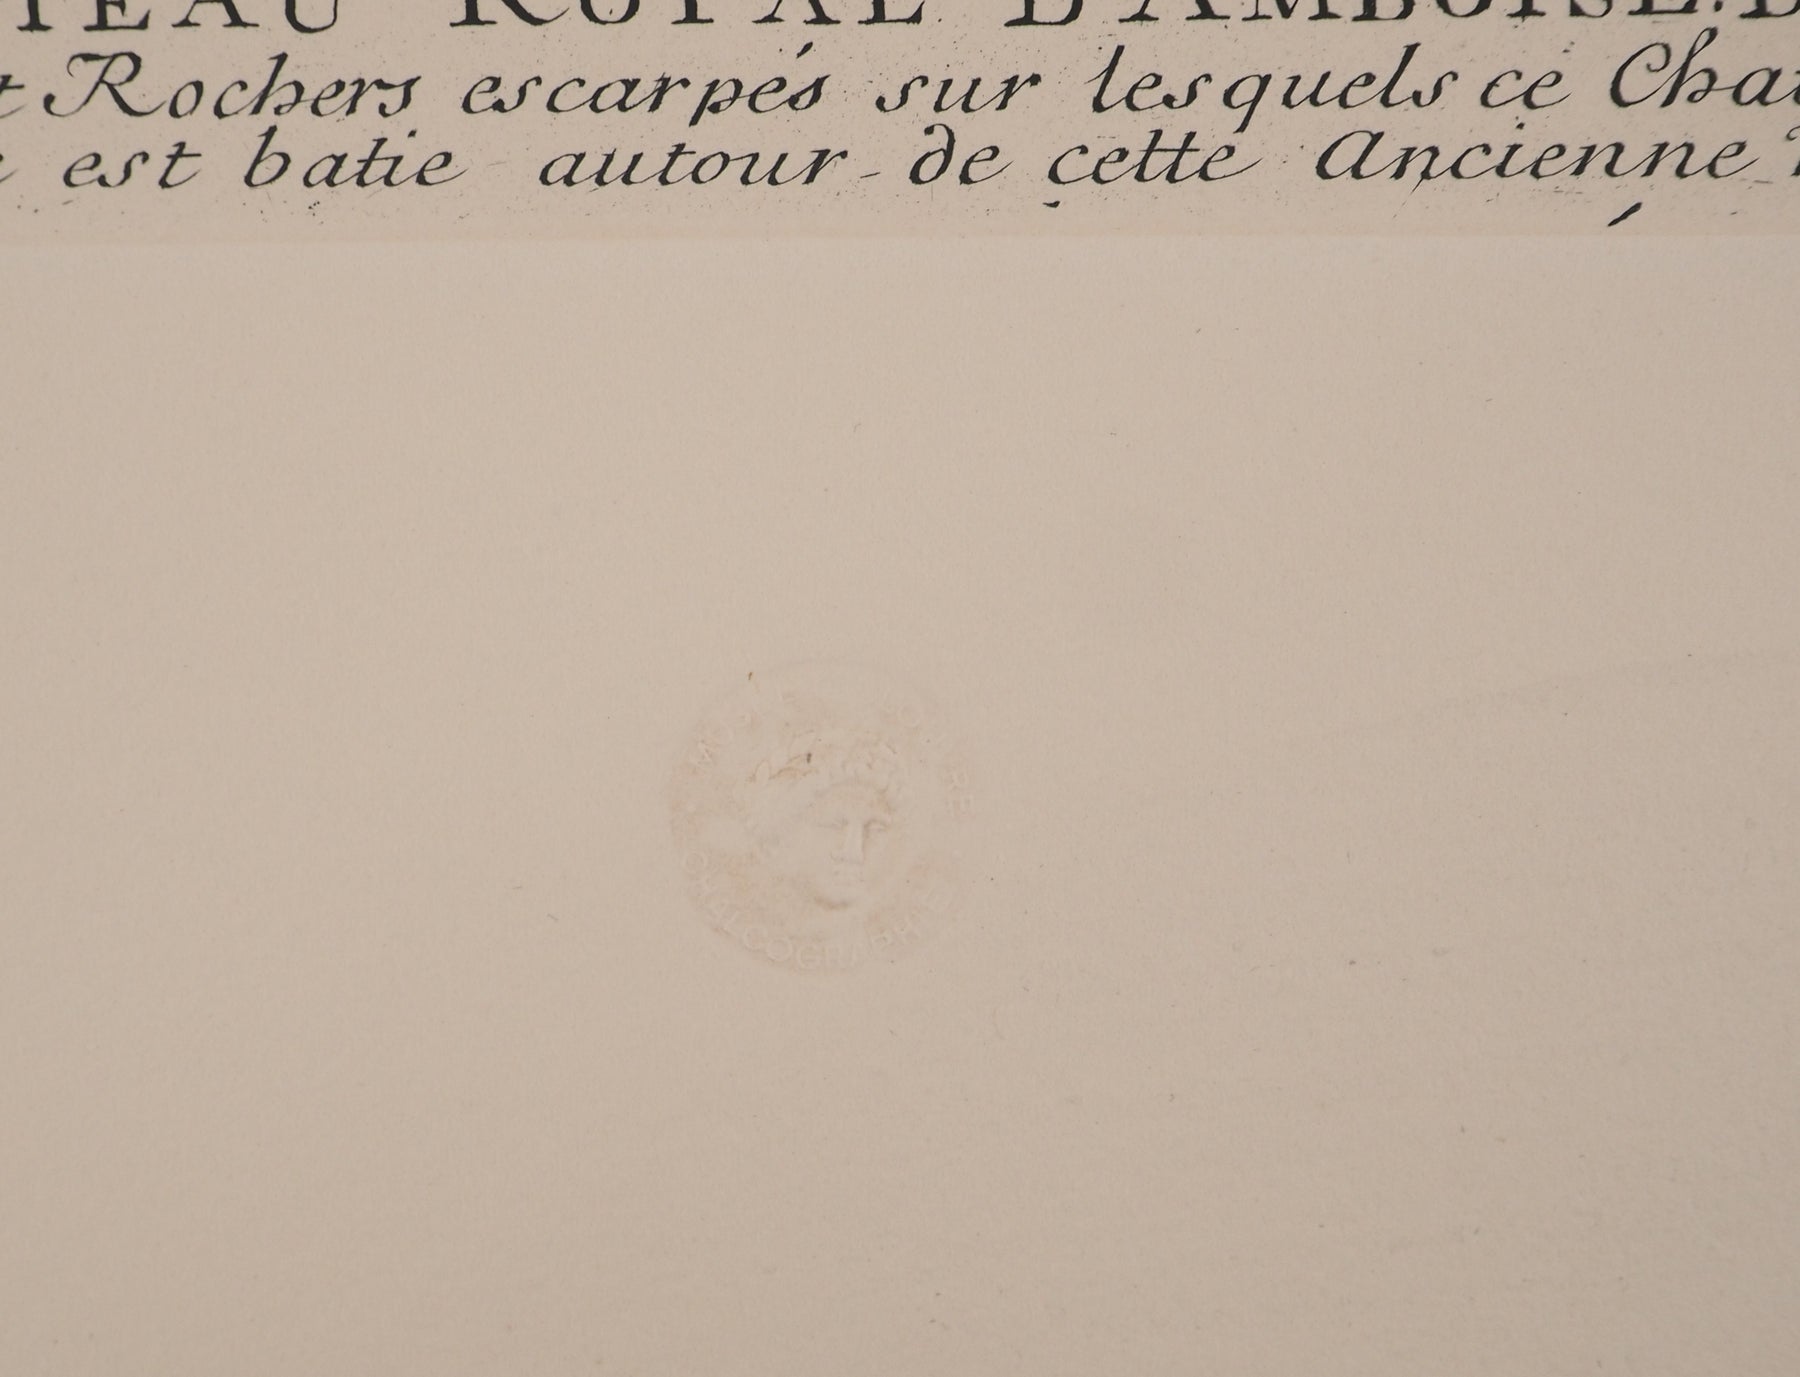 TEAU ROYAL D'AMBOISE.
t Rochers escarpés sur lesquels ce Cha
est batie autour de cette Ancienne
CHALCOGRAPHIE